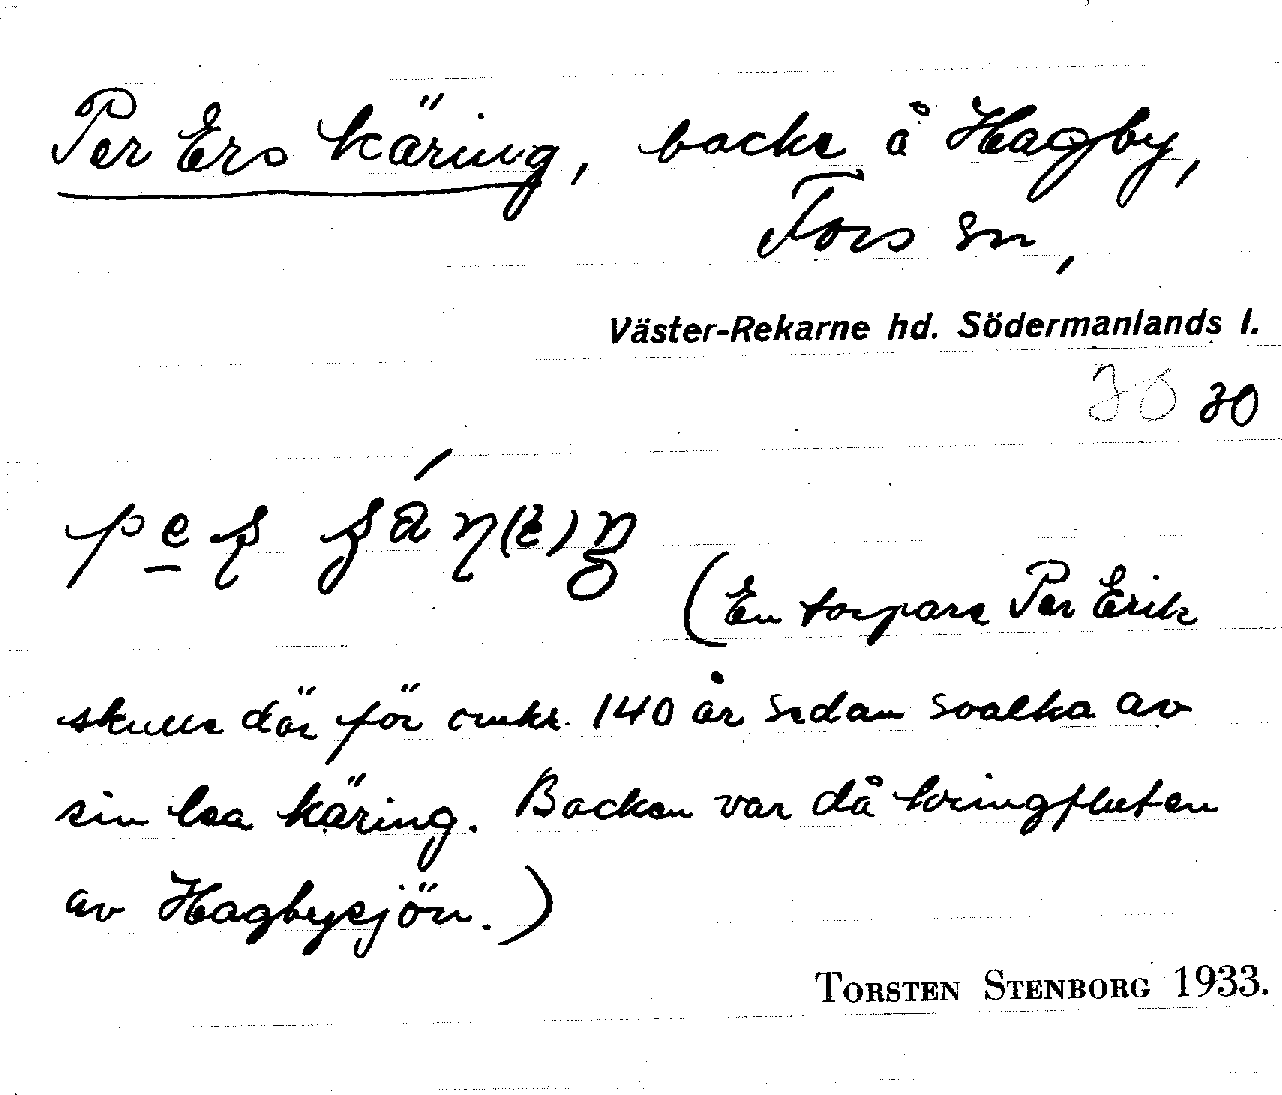 Per Ers käring, backe å Hagby,
Fors sn,
Väster-Rekarne hd. Södermanlands l.
30 30
(En torpare Per Erik
skulle där för omkr. 140 år sedan svalka av
sin lea käring. Backen var då kringfluten
av Hagbysjön.)
TORSTEN STENBORG 1933.